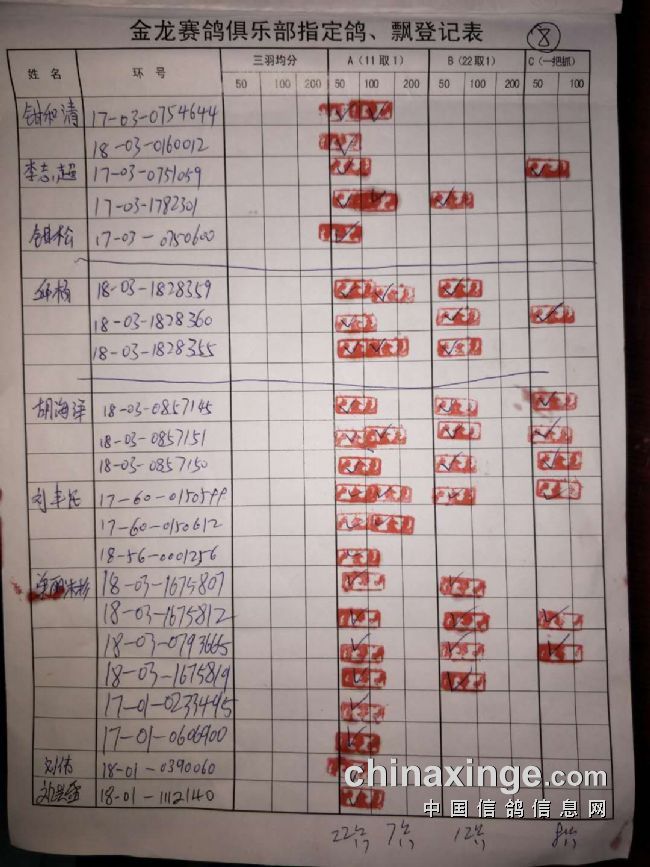 金龙赛鸽俱乐部指定鸽、飘登记表 8
姓名 环号 三羽均分 A(11取1) B(22取1) C(一把抓)
50 100 200 50 100 200 50 100 200 50 100
17-03-0754644
18-03-0160012
李志超 17-03-0751059
17-03-1782301
17-03-0750600
18-03-1828359
18-03-1828360
18-03-1828355
胡海洋 18-03-0857145
18-03-0857151
18-03-0857150
17-60-0150599
17-60-0150612
18-56-0001256
18-03-1675807
18-03-1675812
18-03-0793665
18-03-1675819
17-01-0233495
17-01-0606900
刘伟 18-01-0390060
18-01-1112140
chinaxinge.com
中国信鸽信息网
22 7 12 8